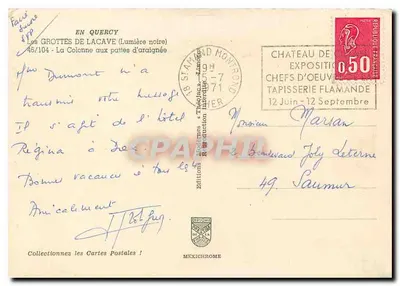 EN QUERCY
Les GROTTES DE LACAVE (Lumière noire)
46/104 - La Colonne aux pattes d'araignée
Dumont m'a
transmis votre message
Il s'agit de l'hôtel
Régina à
Bonnes vacances à tous les
Amicalement
Collectionnez les Cartes Postales !
MEXICHROME
Editions
Reproduction interdite
18 ST AMAND MONTROND
19H
-7
CHER
CHATEAU DE
EXPOSITION
CHEFS D'OEUVRE
TAPISSERIE FLAMANDE
12 Juin-12 Septembre
0,50
Monsieur Marsan
Boulevard Joly Leterme
49. Saumur
CPARAMA